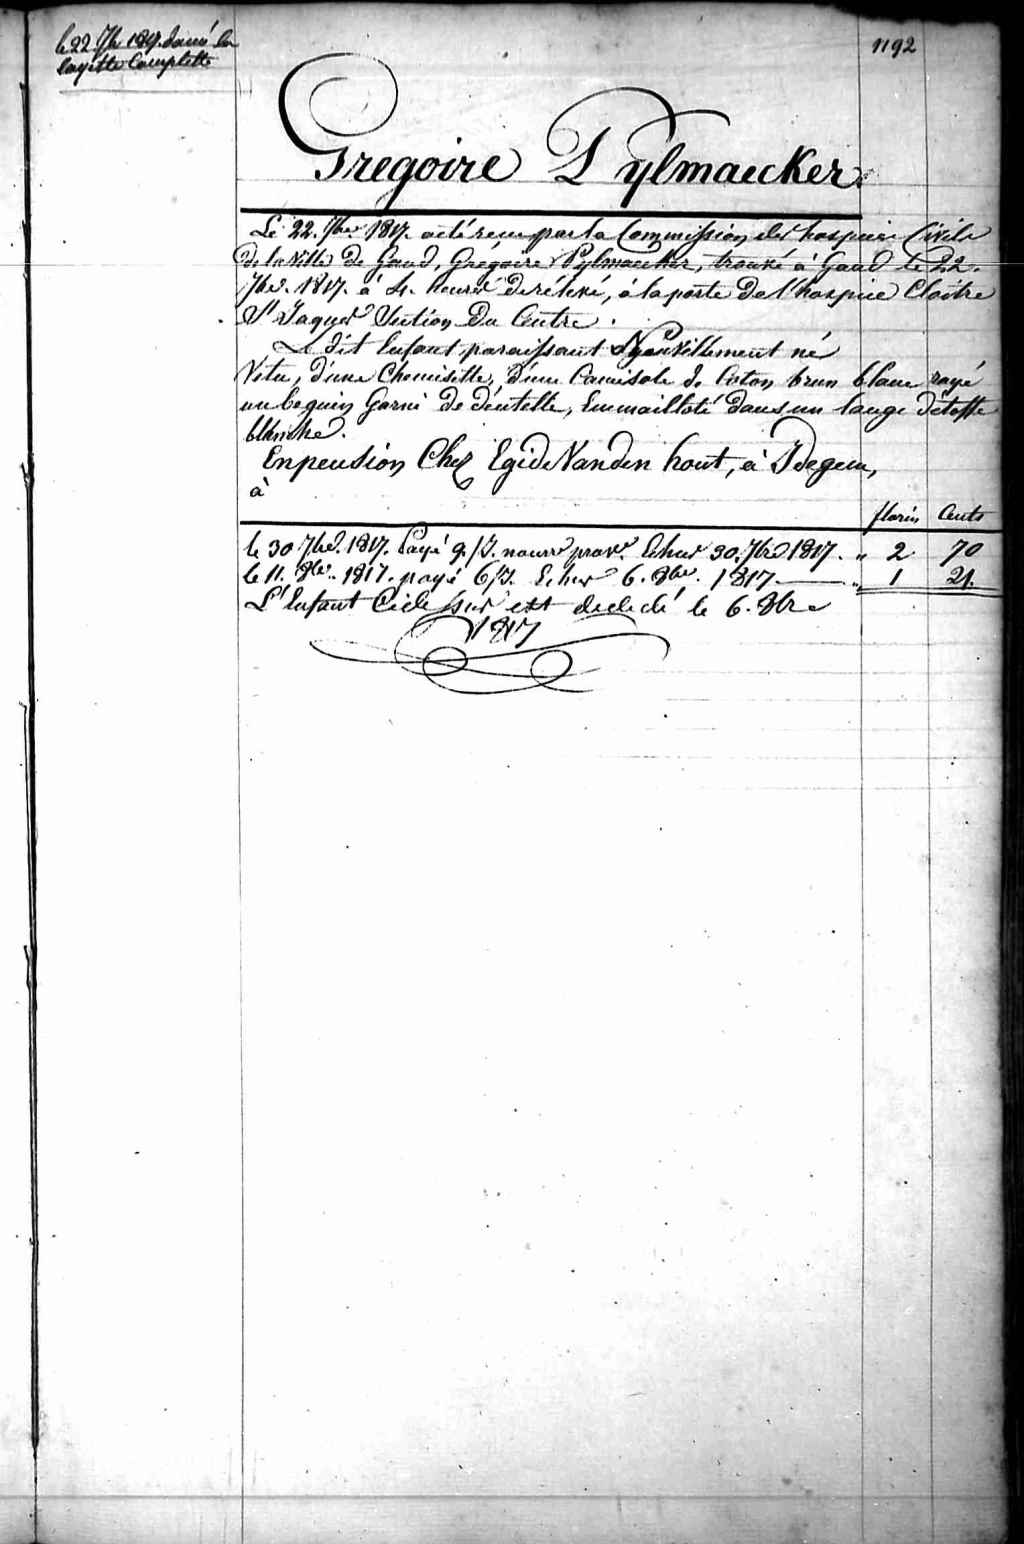 le 22. 7b 1817. donné la
layette Complette
1192
Gregoire Pylmaecker.
Le 22. 7bre 1817. a été recu par la Commission des hospices Civils
de la ville de Gand, Grégoire Pylmaecker, trouvé à Gand le 22.
7bre. 1817. à 4. heures de rélevé, à la porte de l'hospice Cloître
St Jaques Section du Centre.
Le dit Enfant paraissant Nouvellement né
Vetu, d'une Chemisette, d'une Camisole de Coton brun blanc rayé
un beguin Garni de déntelle, Emmailloté dans un lange d'étoffe
blanche.
En pension Chez Egide Vanden hout, à Idegem,
à
florins Cents
le 30 7bre. 1817. Payé 9/J. nourre prov. Echus 30. 7bre 1817. " 2 70
le 11. 8bre. 1817. payé 6/J. Echus 6. 8bre. 1817 " 1 21.
L'Enfant Ci dessus est decedé le 6. 8bre
1817